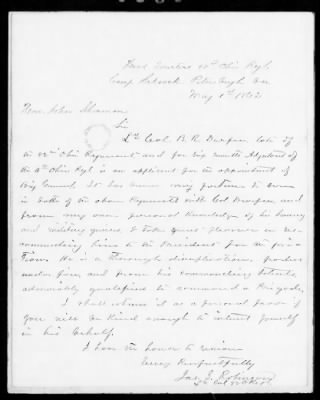 Head Quarters 82nd Ohio Regt
Camp
May 8th 1862
Hon. John Sherman
Sir
Lt Col. B. R. Durfee late of
the 82nd Ohio Regiment and for six months Adjutant of
the 4th Ohio Regt is an applicant for the appointment of
Brig General. It has been my fortune to serve
in both of the above Regiments with Col Durfee and
from my own personal knowledge of his bravery
and military genius, I take great pleasure in re-
commending him to the President for the posi-
tion. He is a thorough disciplinarian,
under fire, and from his commanding talents
admirably qualified to command a Brigade.
I shall esteem it as a personal favor if
you will be kind enough to interest yourself
in his behalf.
I have the honor to remain
Very Respectfully
Jas. S. Robinson